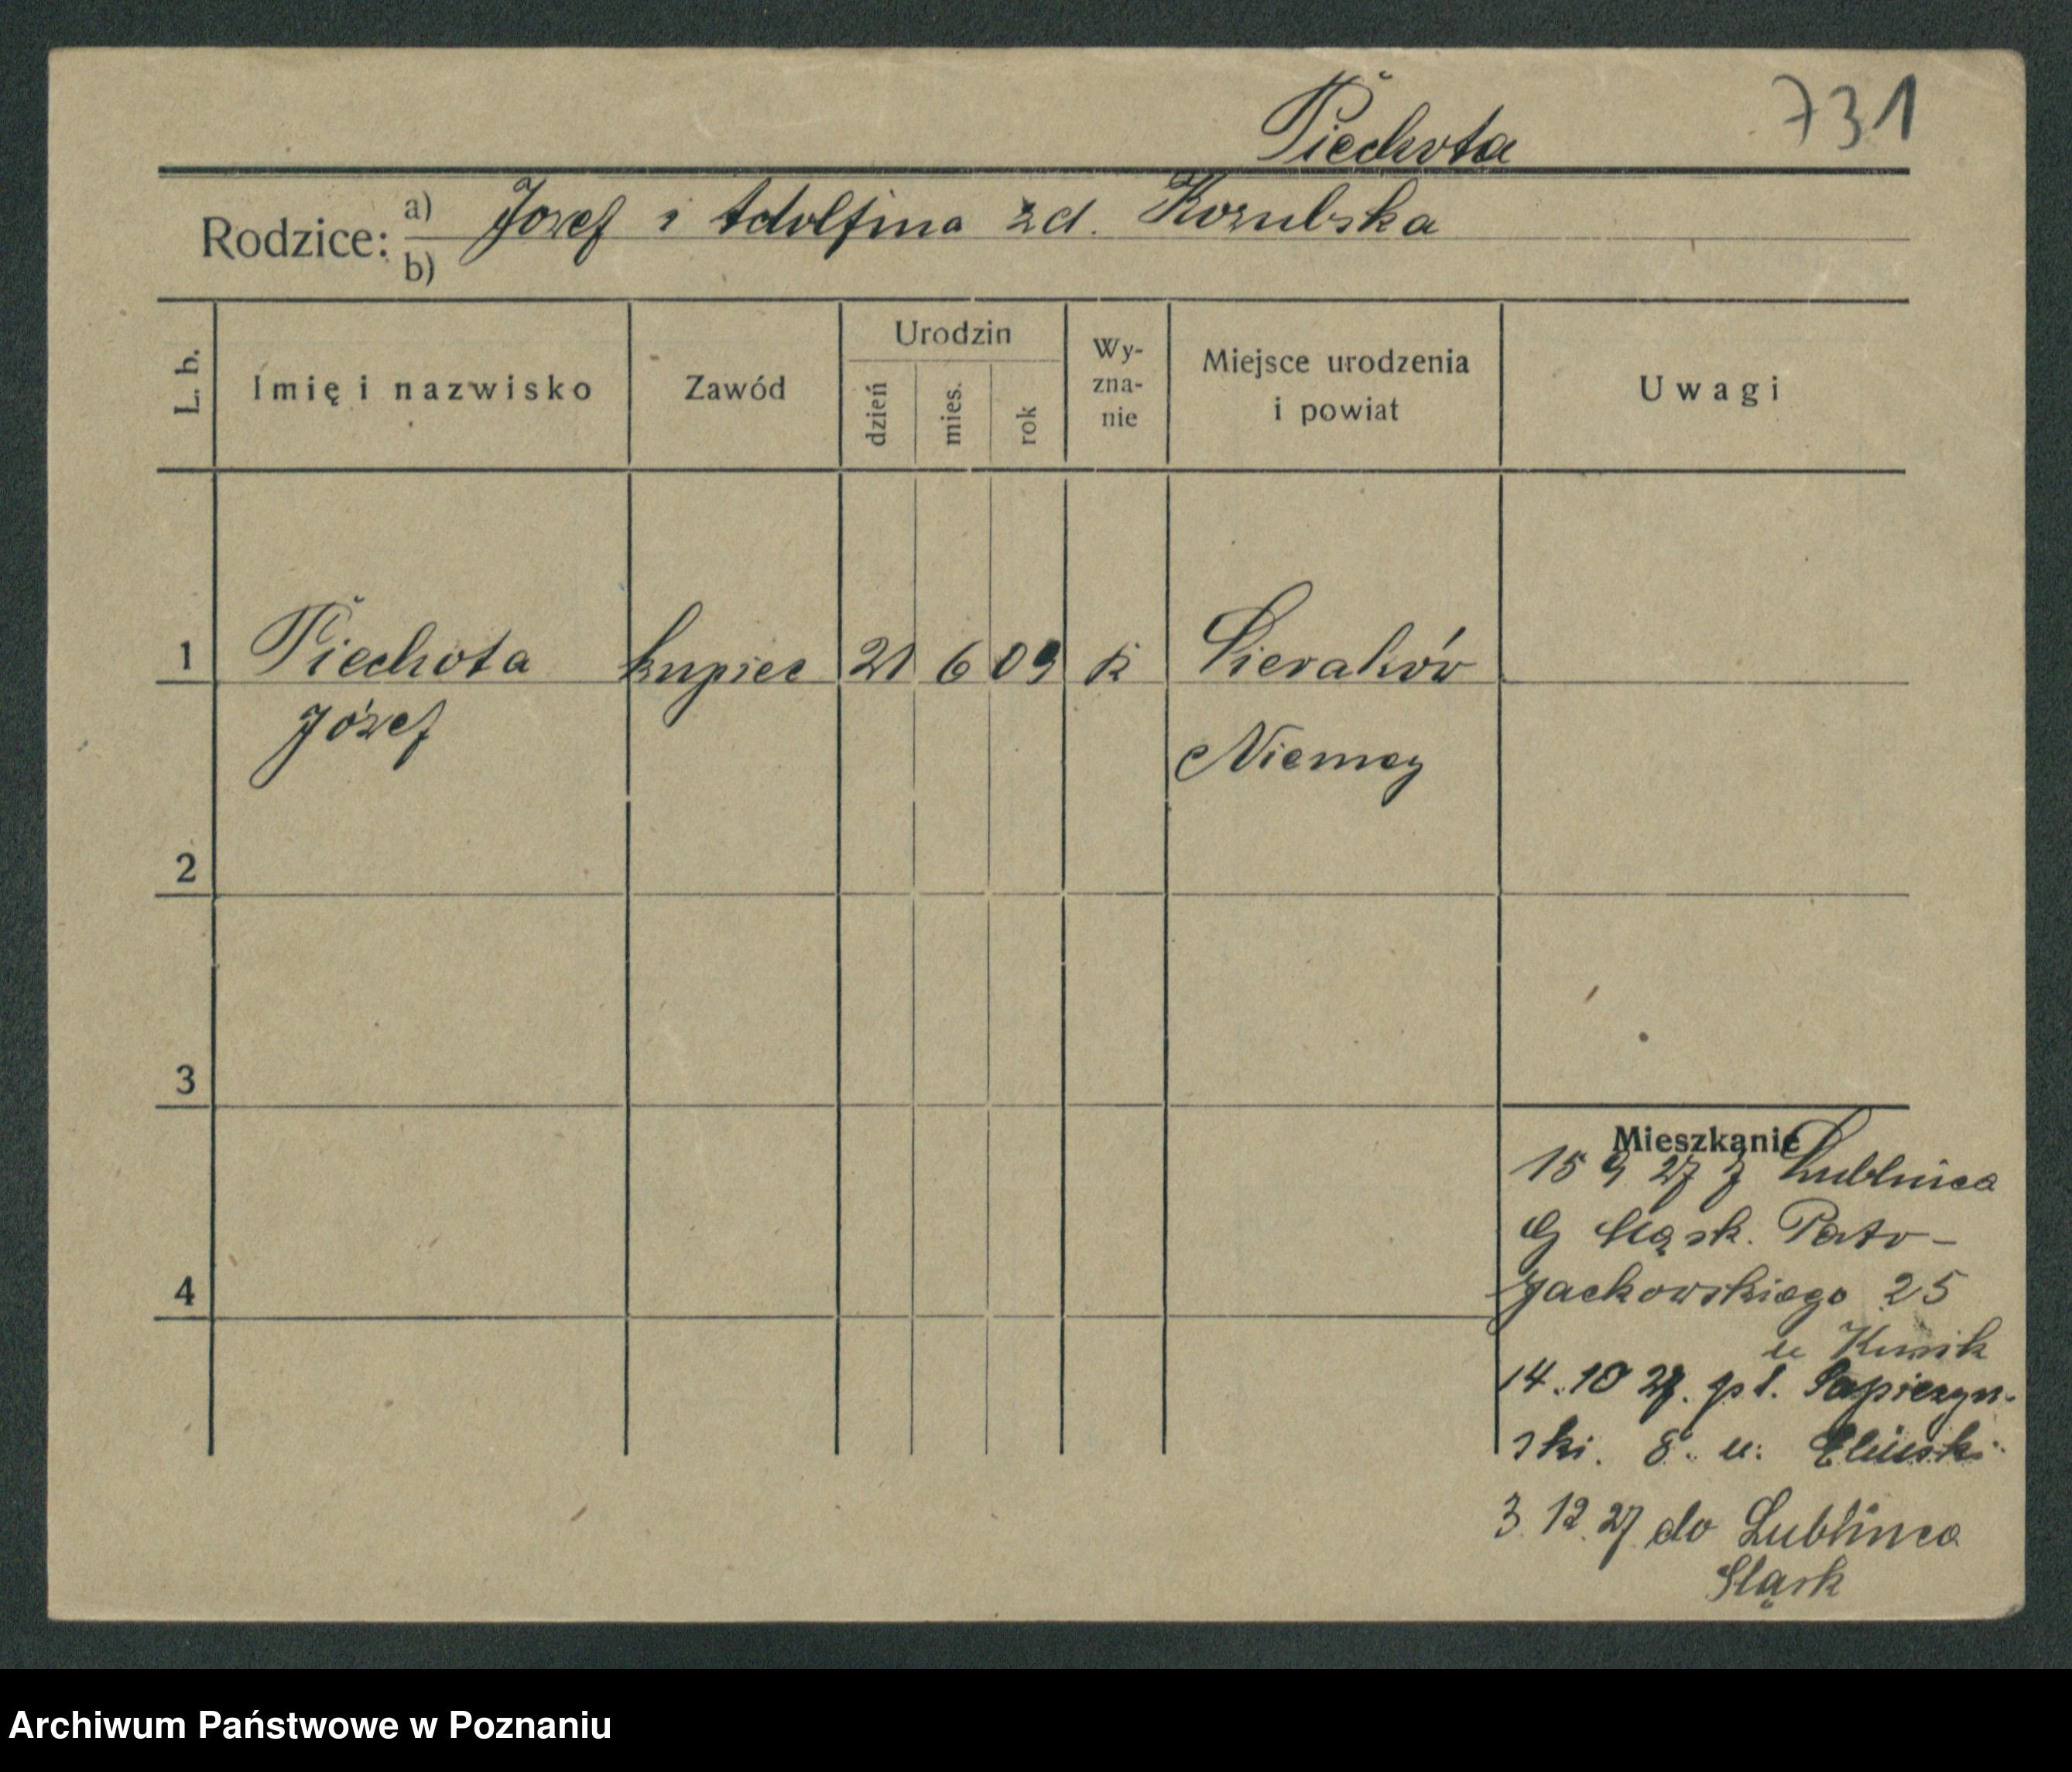 731
Piechota
Rodzice: a) Jozef i Adolfina zd. Kozubska
b)
L. b. Imię i nazwisko Zawód Urodzin dzień mies. rok Wy-zna-nie Miejsce urodzenia i powiat Uwagi
1 Piechota kupiec 21 6 09 K Sieraków
Józef
Niemcy
2
3
4
Mieszkanie
15 9 27 z Lublińca
G Sląsk.
Jackowskiego 25
u
14.10 27. pl. Sapieżyn-
ski. 8. u:
3. 12. 27 do Lublińca
Sląsk
Archiwum Państwowe w Poznaniu